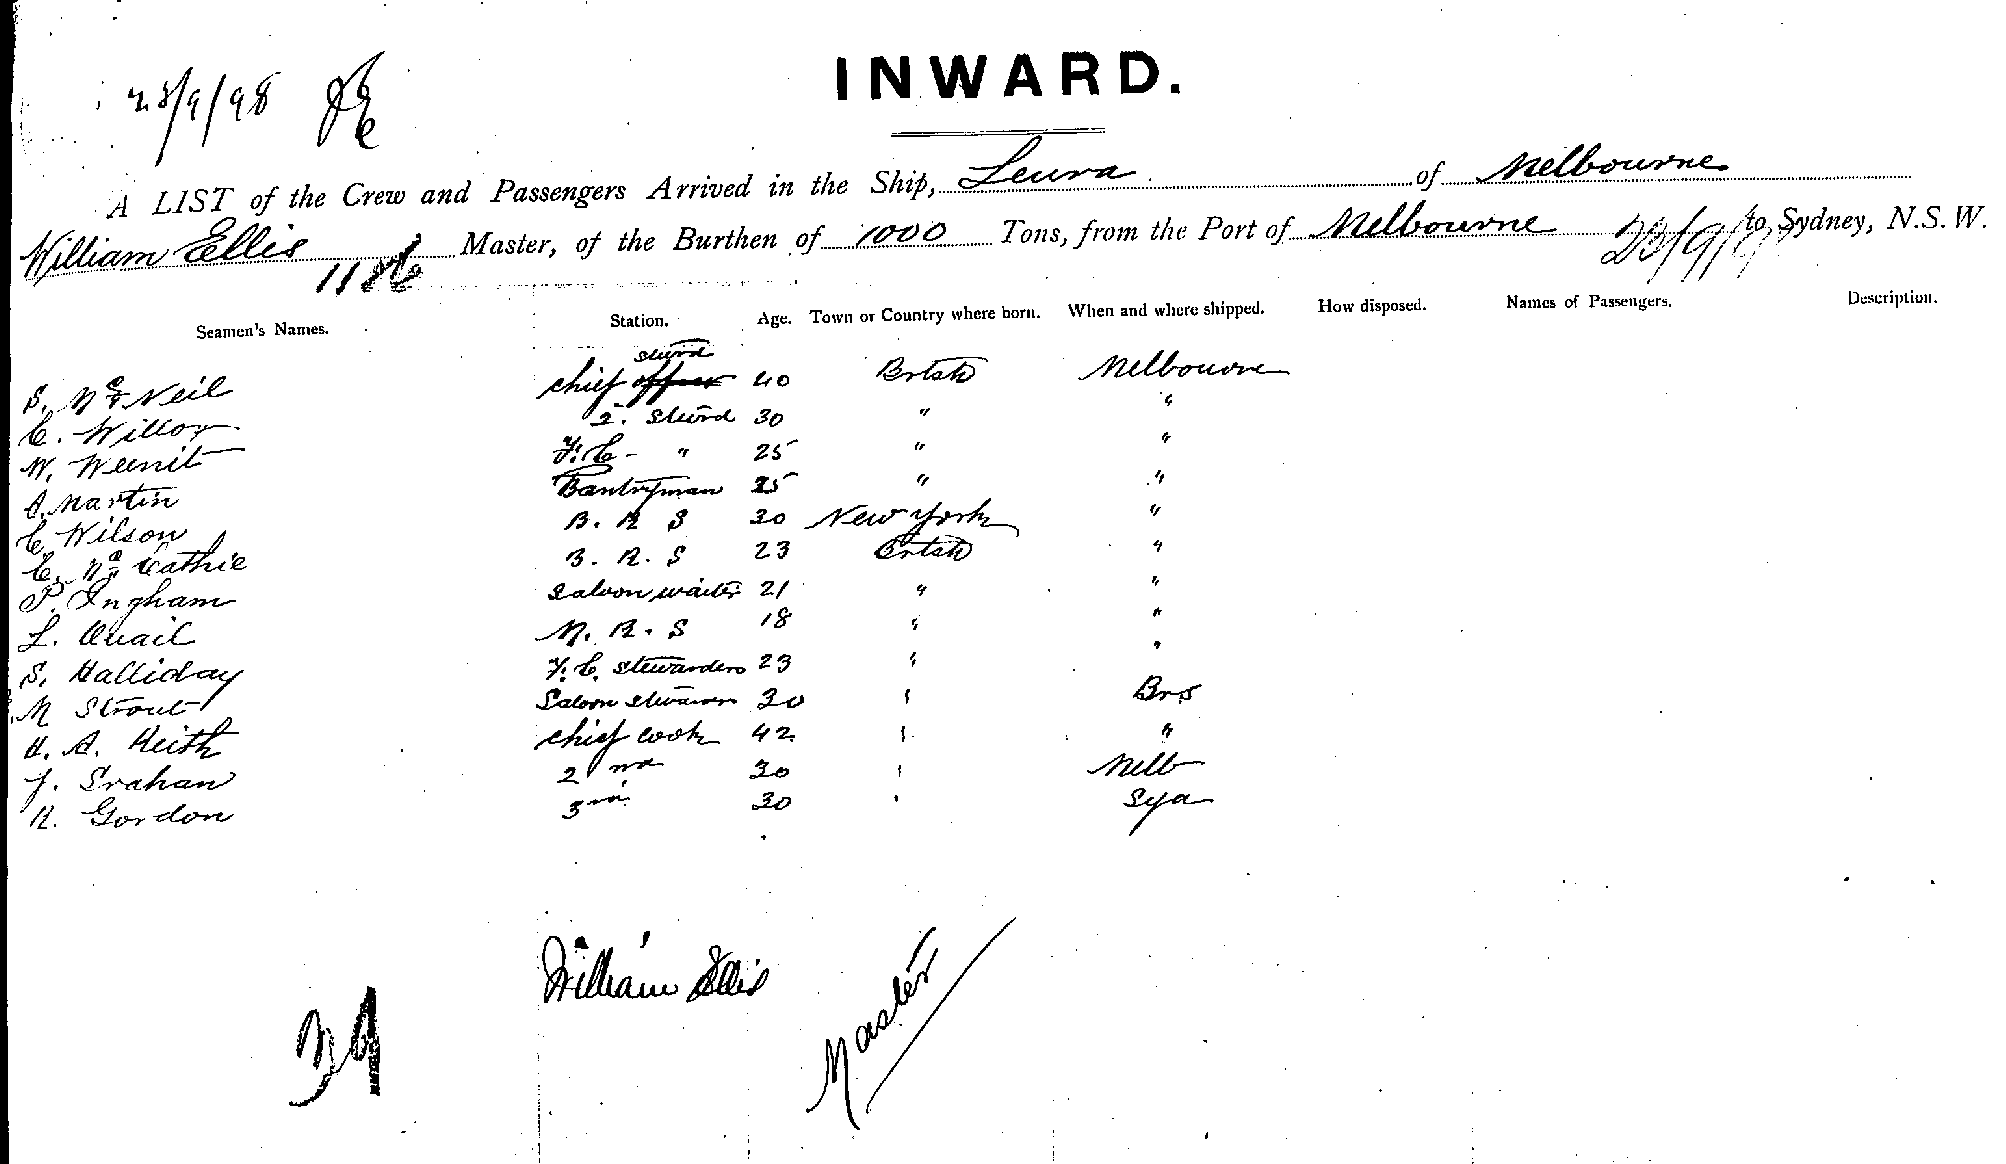 INWARD.
23/9/98
A LIST of the Crew and Passengers Arrived in the Ship, Leura of Melbourne
William Ellis Master, of the Burthen of 1000 Tons, from the Port of Melbourne to Sydney, N.S.W.
1186 23/9/97
Seamen's Names. Station. Age. Town or Country where born. When and where shipped. How disposed. Names of Passengers. Description.
S. McNeil chief stwrd 40 Brtsh Melbourne
C. Willox 2. stwrd 30 " "
W. F. C - " 25 " "
A. Martin Pantryman 25 " "
C. Wilson B. R S 30 New York "
C. McCathie B. R. S 23 Brtsh "
P. Ingham Saloon waiter 21 " "
L. Quail M. R. S 18 " "
S. Halliday F. C. stewardess 23 " "
M Strout Saloon 30 " Brs
H. A. Keith chief cook 42 " "
J. Grahan 2nd 30 " Melb
R. Gordon 3rd 30 " Syd
William Ellis
Master
34